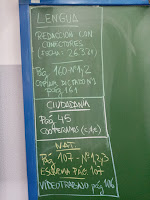 LENGUA
REDACCIÓN CON
CONECTORES
(FECHA: 26.3.21)
Pág. 160-Nº1,2
COPIAR DICTADO Nº3
pág. 161
CIUDADANA
PÁG 45
COOPERAMOS
NAT.
Pág. 107-Nº1,2,3
ESQUEMA PÁG. 107
VIDEOTRABAJO pág. 106